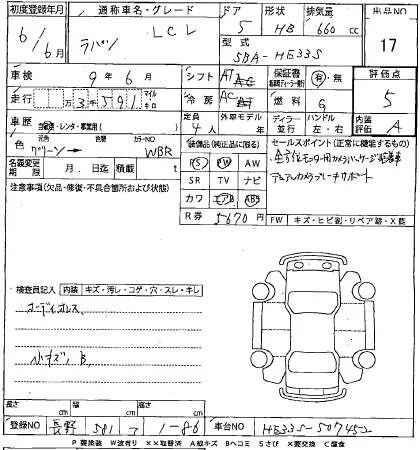 初度登録年月 通称車名・グレード ドア 形状 排気量 出品NO
6/6月 ラパン LCL 5 HB 660cc 17
型式
5BA-HE33S
車検 9年6月 シフト AT 保証書 有・無 評価点
走行 万3千591 マイル キロ 冷房 AC 燃料 G 5
車歴 自家用・レンタ・事業用( ) 定員 外車モデル ディーラー ハンドル 内装
4人 年 並行 左・右 評価 A
色 元色 グリーン→ カラーNO WBR
装備品(純正品に限る) セールスポイント(正常に機能するもの)
名義変更期限 月.日迄 積載 t
PS PW AW
・全方位モニター用カメラパッケージ
デュアルカメラブレーキサポート
注意事項(欠品・修復・不具合箇所および状態)
SR TV ナビ
カワ エアB ABS
R券 5670円
FW キズ・ヒビ割・リペア跡・X要
検査員記入 内装 キズ・汚レ・コゲ・穴・スレ・キレ
小キズ B
長さ cm 幅 cm 高さ cm
登録NO 長野 581 1-86 車台NO HE33S-507452
P要塗装 W波有り ××取替済 A線キズ Bヘコミ Sさび ×要交換 C腐食